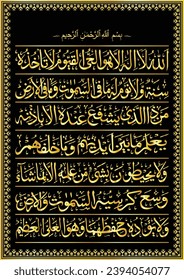 بسم الله الرحمن الرحيم
الله لا إله إلا هو الحي القيوم لا تأخذه
سنة ولا نوم له ما في السموت وما في الأرض
من ذا الذي يشفع عنده إلا بإذنه
يعلم ما بين أيديهم وما خلفهم
ولا يحيطون بشيء من علمه إلا بما شاء
وسع كرسيه السموت والأرض
ولا يؤده حفظهما وهو العلي العظيم
shutterstock.com · 2394054077